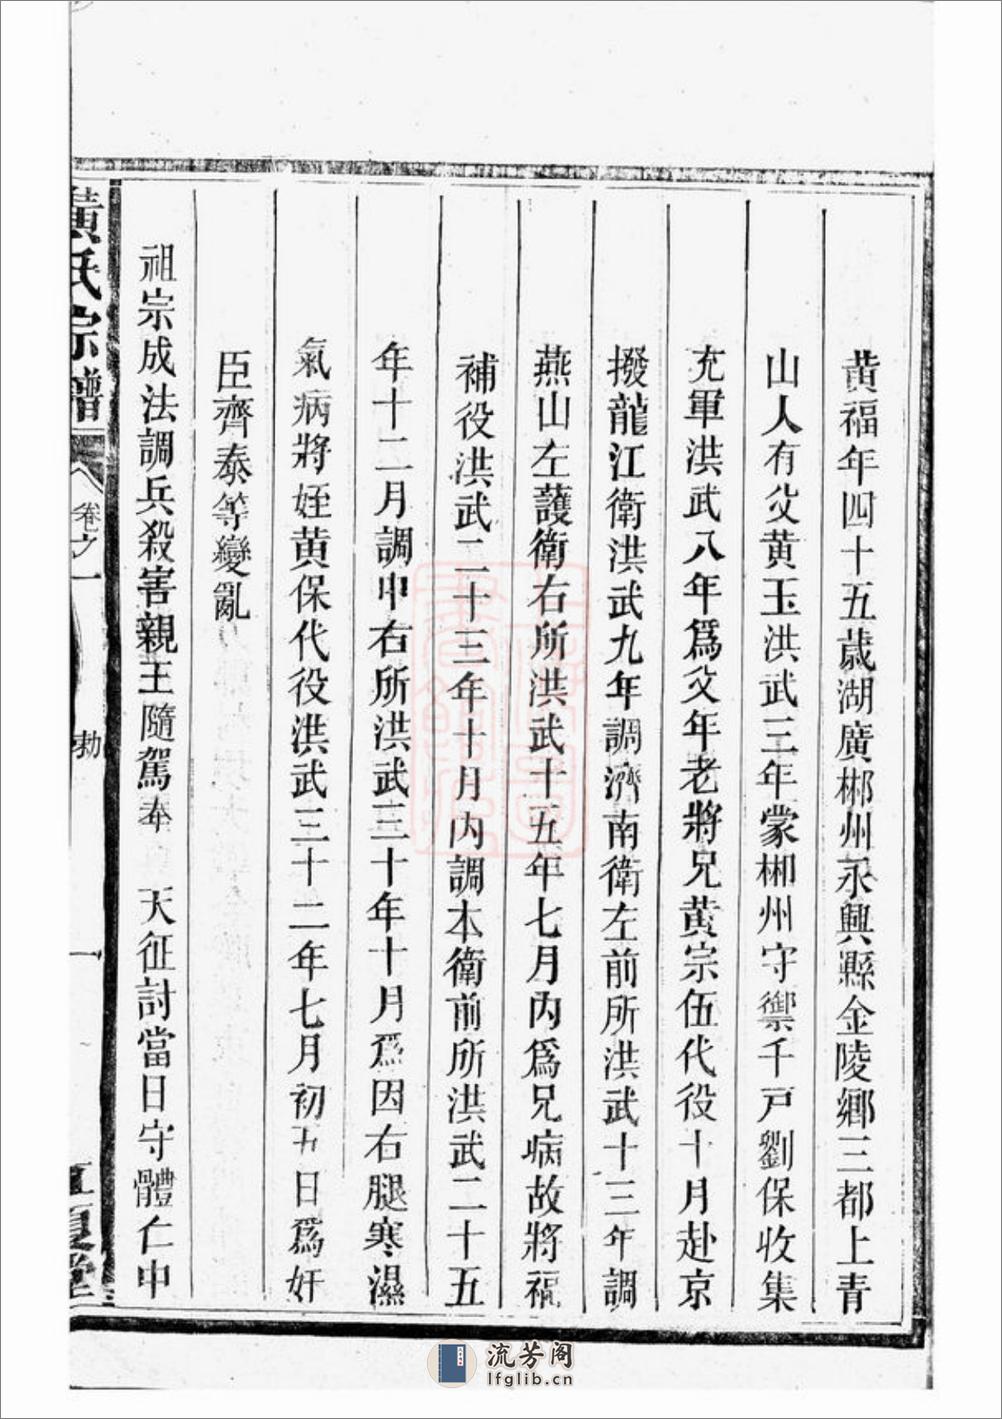 黃福年四十五歲湖廣郴州永興縣金陵鄉三都上青
山人有父黃玉洪武三年蒙郴州守禦千戸劉保收集
充軍洪武八年爲父年老將兄黃宗伍代役十月赴京
撥龍江衛洪武九年調濟南衛左前所洪武十三年調
燕山左護衛右所洪武十五年七月內爲兄病故將福
補役洪武二十三年十月內調本衛前所洪武二十五
年十二月調中右所洪武三十年十月爲因右腿寒濕
氣病將姪黃保代役洪武三十二年七月初五日爲奸
臣齊泰等變亂
祖宗成法調兵殺害親王隨駕奉 天征討當日守體仁中
黃氏宗譜 卷之一 勅 一 江夏堂
流芳阁
lfglib.cn